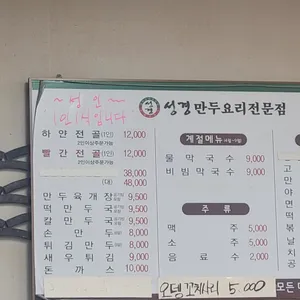 성경만두요리전문점
(1인)시입니다
하얀전골(1인) 12,000
2인이상주문가능
빨간전골(1인) 12,000
2인이상주문가능
38,000
(대) 48,000
만두육개장 9,500
떡만두국 9,500
칼만두국 9,500
손만두 8,000
튀김만두 8,000
새우튀김 9,000
돈까스 10,000
계절메뉴
물막국수 9,000
비빔막국수 9,000
주류
맥주 5,000
소주 5,000
음료수 2,000
오뎅꼬치사리 5,000
고
만
야
면
떡
볶
날
치
공
모든